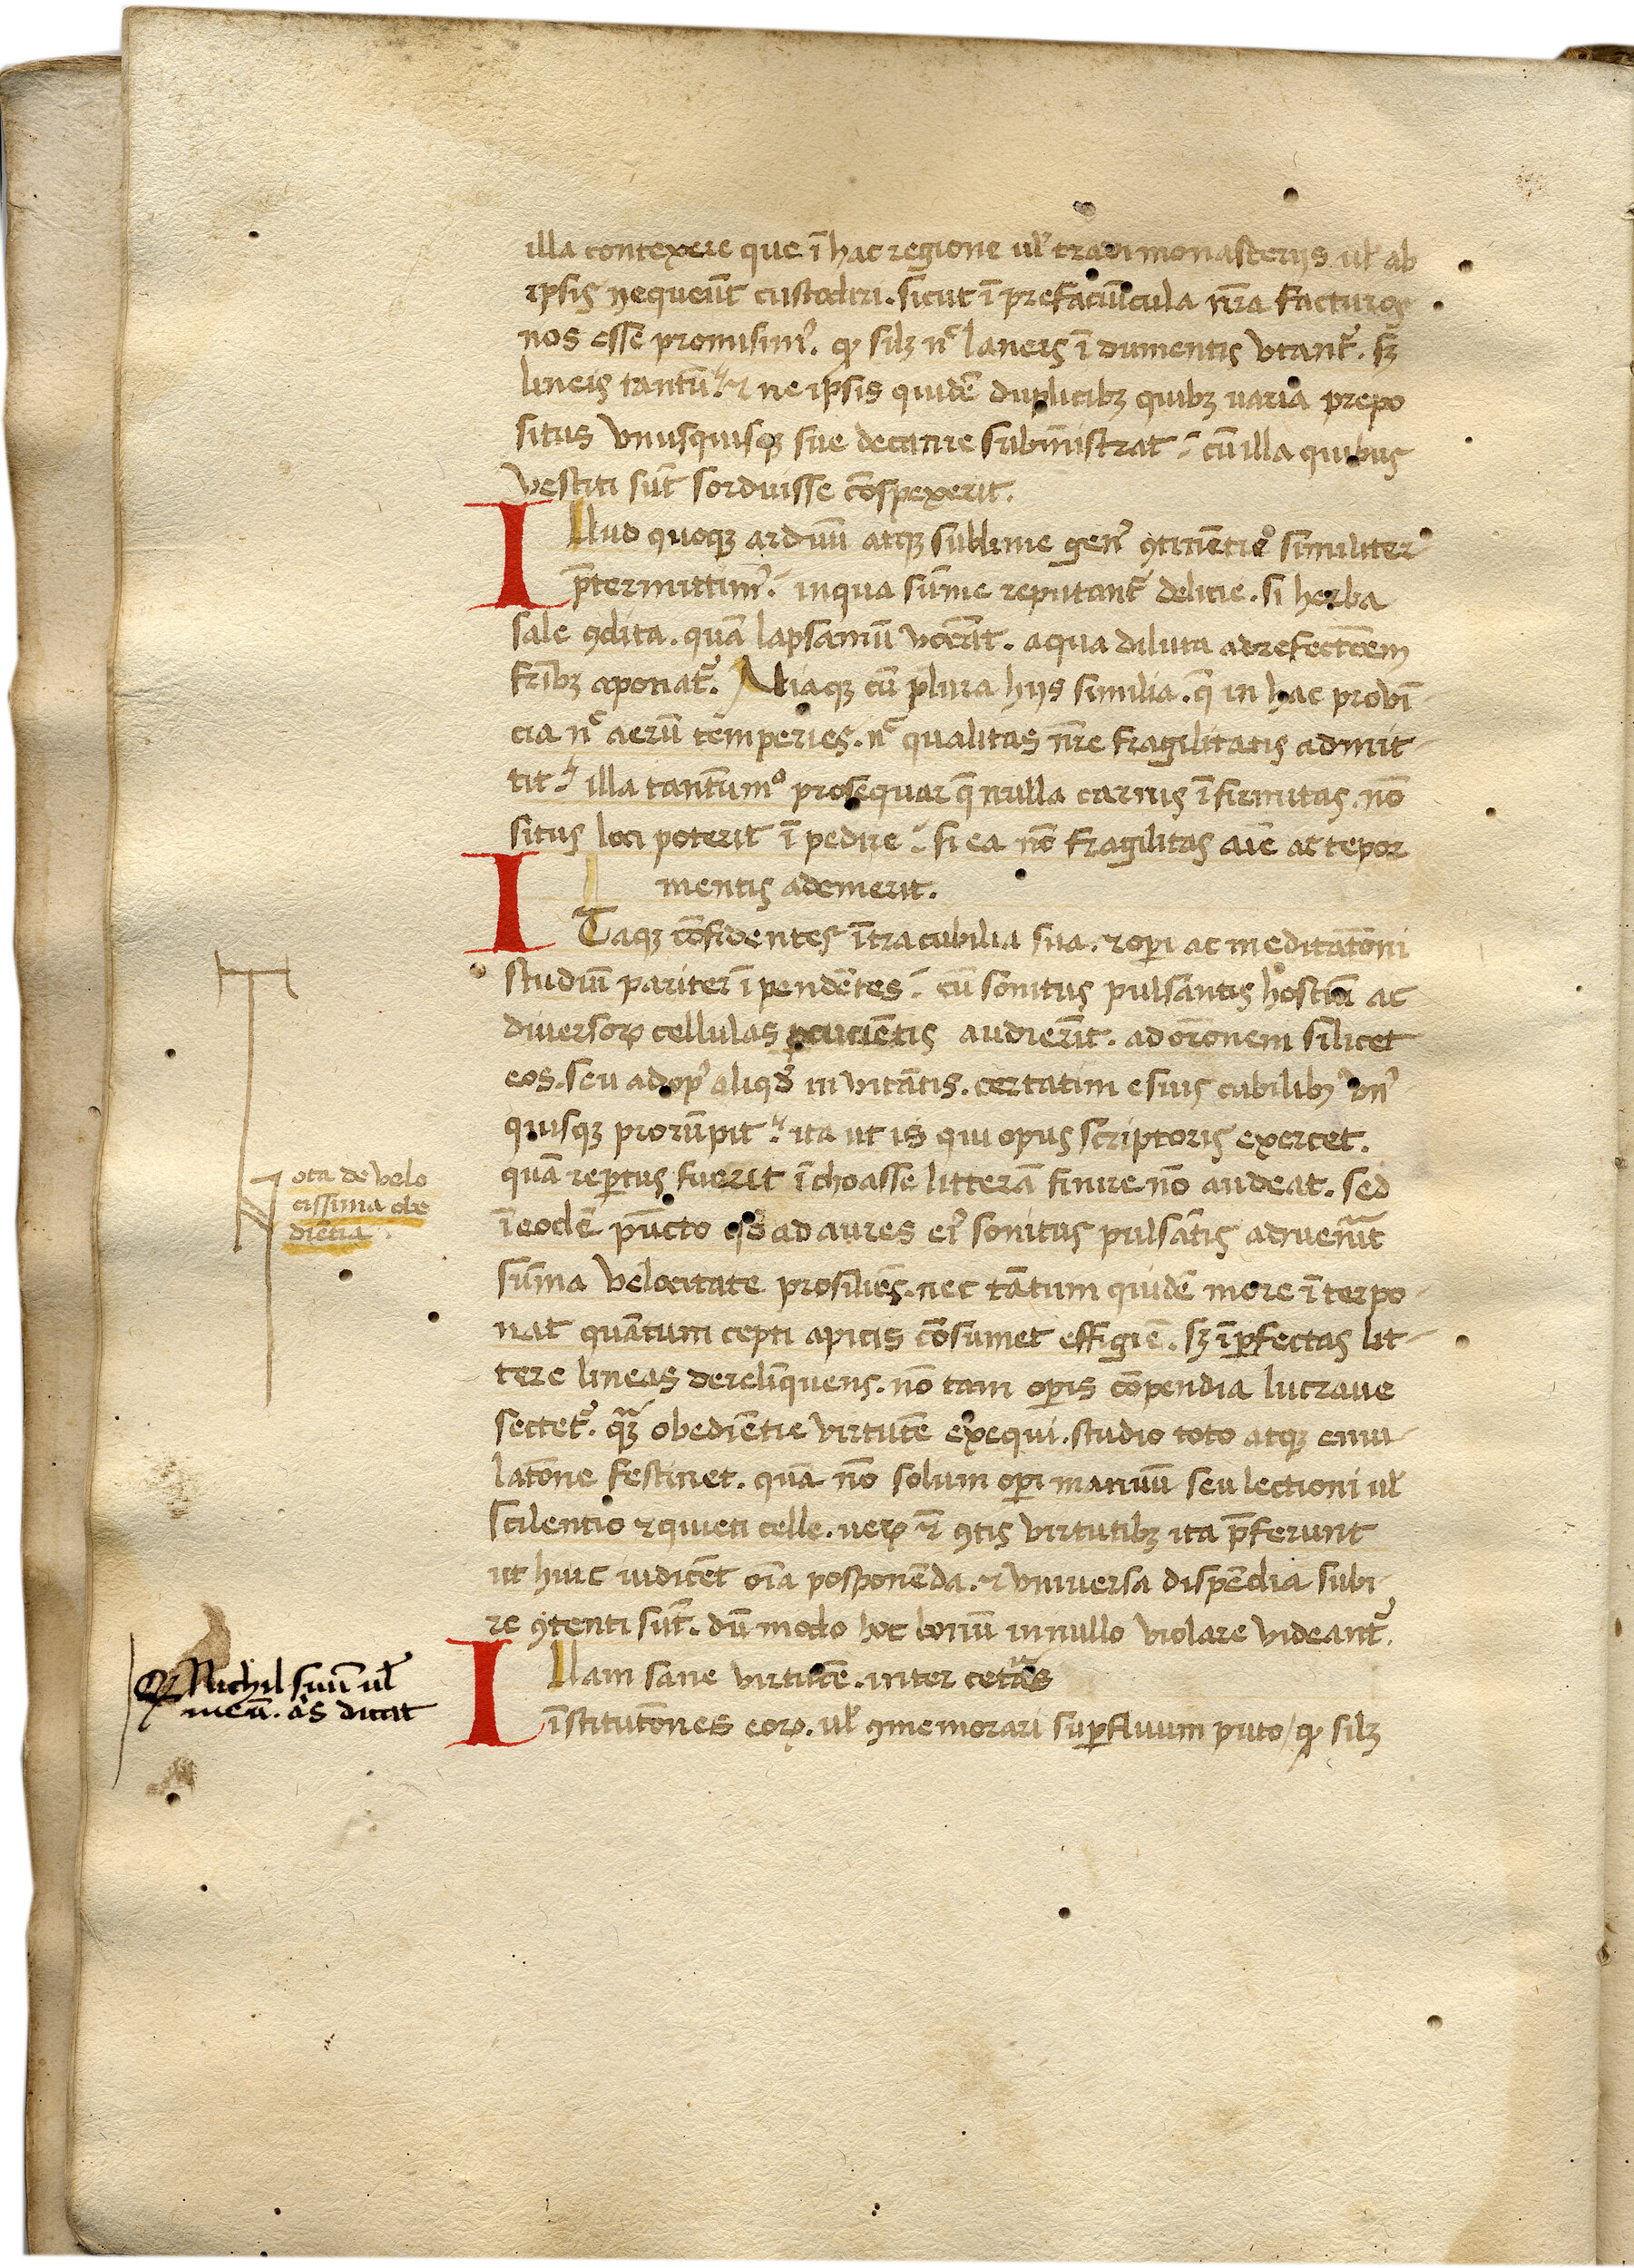 illa contexere que ī hac regione ul' tradi monasterijs ul' ab
ipsis nequeūt custodiri. sicut ī prefatiūcula nr̄a facturos
nos esse promisim9. qr silz nc laneis ī dumentis vtant᷑. sz
lineis tantū. ⁊ ne ipsis quidē duplicibz quibz uaria prepo
situs vnusquisqz sue decanie subministrat. cū illa quibus
vestiti sūt sorduisse cōspexerit.
Illud quoqz arduū atqz sublime gen9 ꝯtinētie similiter
p̄termittim9. in qua sūme reputant᷑ delicie. si herba
sale ꝯdita. quā lapsaniū vocāt. aqua diluta ad refectōem
fr̄ibz aponat᷑. Aliaqz cū plura hijs similia. q̄ in hac provī
cia nc aerū temperies. nc qualitas nr̄e fragilitatis admit
tit. illa tantūmo prosequar q̄ nulla carnis īfirmitas. nō
situs loci poterit ī pedire. si ea nō fragilitas aīe ac tepor
mentis ademerit.
ITaqz cōsidentes ītra cubilia sua. ⁊ opi ac meditatōni
studiū pariter ī pendētes. cū sonitus pulsantis hostiū ac
diversoꝝ cellulas pcucientis audierīt. ad orōnem silicet
eos. seu ad op9 aliqd inuitātis. certatim e suis cubilibz vn9
quisqz prorūpit. ita ut is qui opus scriptoris exercet.
quā reptus fuerit īchoasse litterā finire nō audeat. sed
ī eodē pūcto quo ad aures ei9 sonitus pulsātis aduen̄it
sūma velocitate prosiliēs. nec tātum quidē more īterpo
nat quātum cepti apicis cōsumet effigiē. sz īpfectas lit
tere lineas derelīquens. nō tam opis cōpendia lucraue
sectet᷑. qz obediētie virtutē exequi. studio toto atqz emu
latōne festinet. quā nō solum opi manuū seu lectioni ul'
scilentio ⁊ quieti celle. ueꝝ ⁊ ꝯtis virtutibz ita p̄ferunt
ut huic iudicēt oīa posponēda. ⁊ vniuersa dispēdia subi
re ꝯtenti sūt. dū modo hoc bonū in nullo violare uideant᷑.
Illam sane virtutē. inter ceteras
īstitutōnes eoꝝ. ul' ꝯmemorari supfluum puto / qr silz
Nota de velo
cissima obe
diētia.
Qr Nichil suū ul'
meū. as dicat